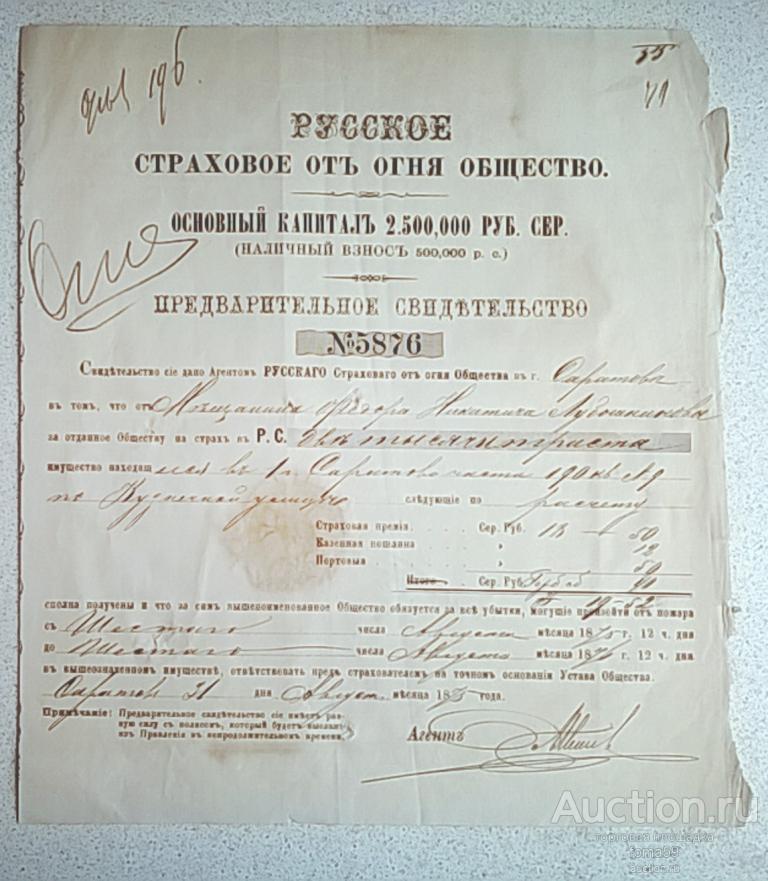 196.
55
71
РУССКОЕ
СТРАХОВОЕ ОТЪ ОГНЯ ОБЩЕСТВО.
ОСНОВНЫЙ КАПИТАЛЪ 2.500,000 РУБ. СЕР.
(НАЛИЧНЫЙ ВЗНОСЪ 500,000 р. с.)
ПРЕДВАРИТЕЛЬНОЕ СВИДѢТЕЛЬСТВО
№5876
Свидѣтельство сіе дано Агентомъ РУССКАГО Страховаго отъ огня Общества въ г. Саратовѣ
въ томъ, что отъ Мѣщанина Ѳедора Никитича
за отданное Обществу на страхъ въ Р. С. двѣ тысячи триста
имущество находящ въ 1 Саратова части 190 кв
по Кузнечной улицѣ слѣдующіе по расчету
Страховая премія Сер. Руб. 18 50
Казенная пошлина „ 12
Портовыя „ 50
Итого Сер. Руб. 40
19-52
сполна получены и что за симъ вышепоименованное Общество обязуется за всѣ убытки, могущіе произойти отъ пожара
съ Шестаго числа Августа мѣсяца 1875 г. 12 ч. дня
до Шестаго числа Августа мѣсяца 1876 г. 12 ч. дня
въ вышеозначенномъ имуществѣ, отвѣтствовать предъ страхователемъ на точномъ основаніи Устава Общества.
Саратов дня Август мѣсяца 1875 года.
Примѣчаніе: Предварительное свидѣтельство сіе имѣетъ рав-
ную силу съ полисомъ, который будетъ высланъ
изъ Правленія въ непродолжительномъ времени.
Агентъ
Auction.ru
торговая площадка
foma59
auction.ru